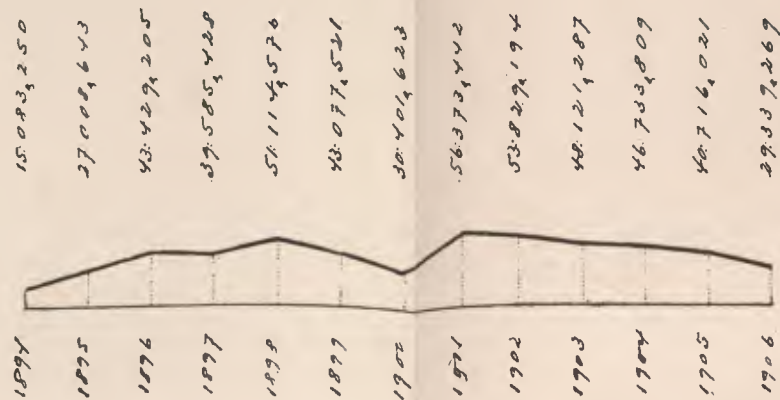 15.083,250
27.008,643
43.429,205
39.585,428
51.114,576
43.077,521
30.401,623
56.373,442
53.829,194
48.121,287
46.733,809
40.716,021
29.339,269
1894
1895
1896
1897
1898
1899
1900
1901
1902
1903
1904
1905
1906